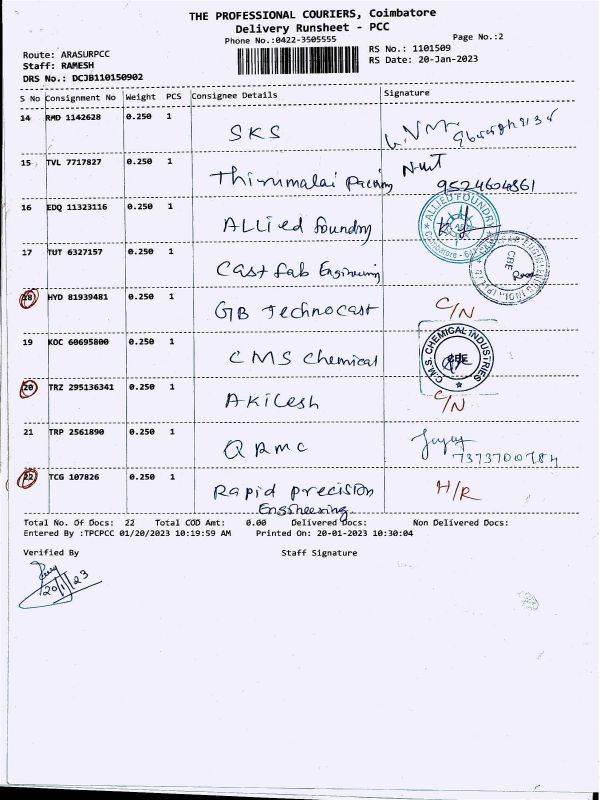 THE PROFESSIONAL COURIERS, Coimbatore
Delivery Runsheet - PCC
Phone No.:0422-3505555
Page No.:2
Route: ARASURPCC
RS No.: 1101509
Staff: RAMESH
RS Date: 20-Jan-2023
DRS No.: DCJB110150902
S No Consignment No Weight PCS Consignee Details Signature
14 RMD 1142628 0.250 1
SKS
15 TVL 7717827 0.250 1
Thirumalai Packing 9524604861
16 EDQ 11323116 0.250 1
ALLIED FOUNDRY
Allied foundry
17 TUT 6327157 0.250 1
CBE
Cast fab Engineering
18 HYD 81939481 0.250 1
GB Technocast C/N
19 KOC 60695800 0.250 1
C.M.S. CHEMICAL INDUSTRIES
CMS Chemical
20 TRZ 295136341 0.250 1
Akilesh C/N
21 TRP 2561890 0.250 1
QRMC 7373700784
22 TCG 107826 0.250 1
Rapid precision H/R
Engineering
Total No. Of Docs: 22 Total COD Amt: 0.00 Delivered Docs: Non Delivered Docs:
Entered By :TPCPCC 01/20/2023 10:19:59 AM Printed On: 20-01-2023 10:30:04
Verified By Staff Signature
20/1/23